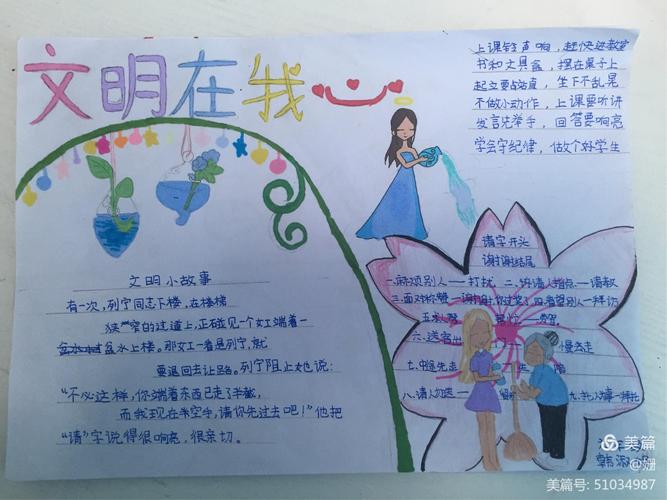 文明在我
上课铃声响，赶快进教室
书和文具盒，摆在桌子上
起立要站直，坐下不乱晃
不做小动作，上课要听讲
发言先举手，回答要响亮
学会守纪律，做个好学生
文明小故事
有一次，列宁同志下楼，在楼梯
狭窄的过道上，正碰见一个女工端着一
盆水上楼。那女工一看是列宁，就
要退回去让路。列宁阻止她说：
“不必这样，你端着东西已走了半截，
而我现在手空手，请你先过去吧！”他把
“请”字说得很响亮，很亲切。
请字开头
谢谢结尾
一、麻烦别人——打扰 二、求请人指点——请教
三、面对称赞——谢谢，你过奖了 四、看望别人——拜访
六、送客出
慢走
七、中途先走
八、请人勿送——留
九、托人办事——拜托
美篇
@姗
美篇号：51034987